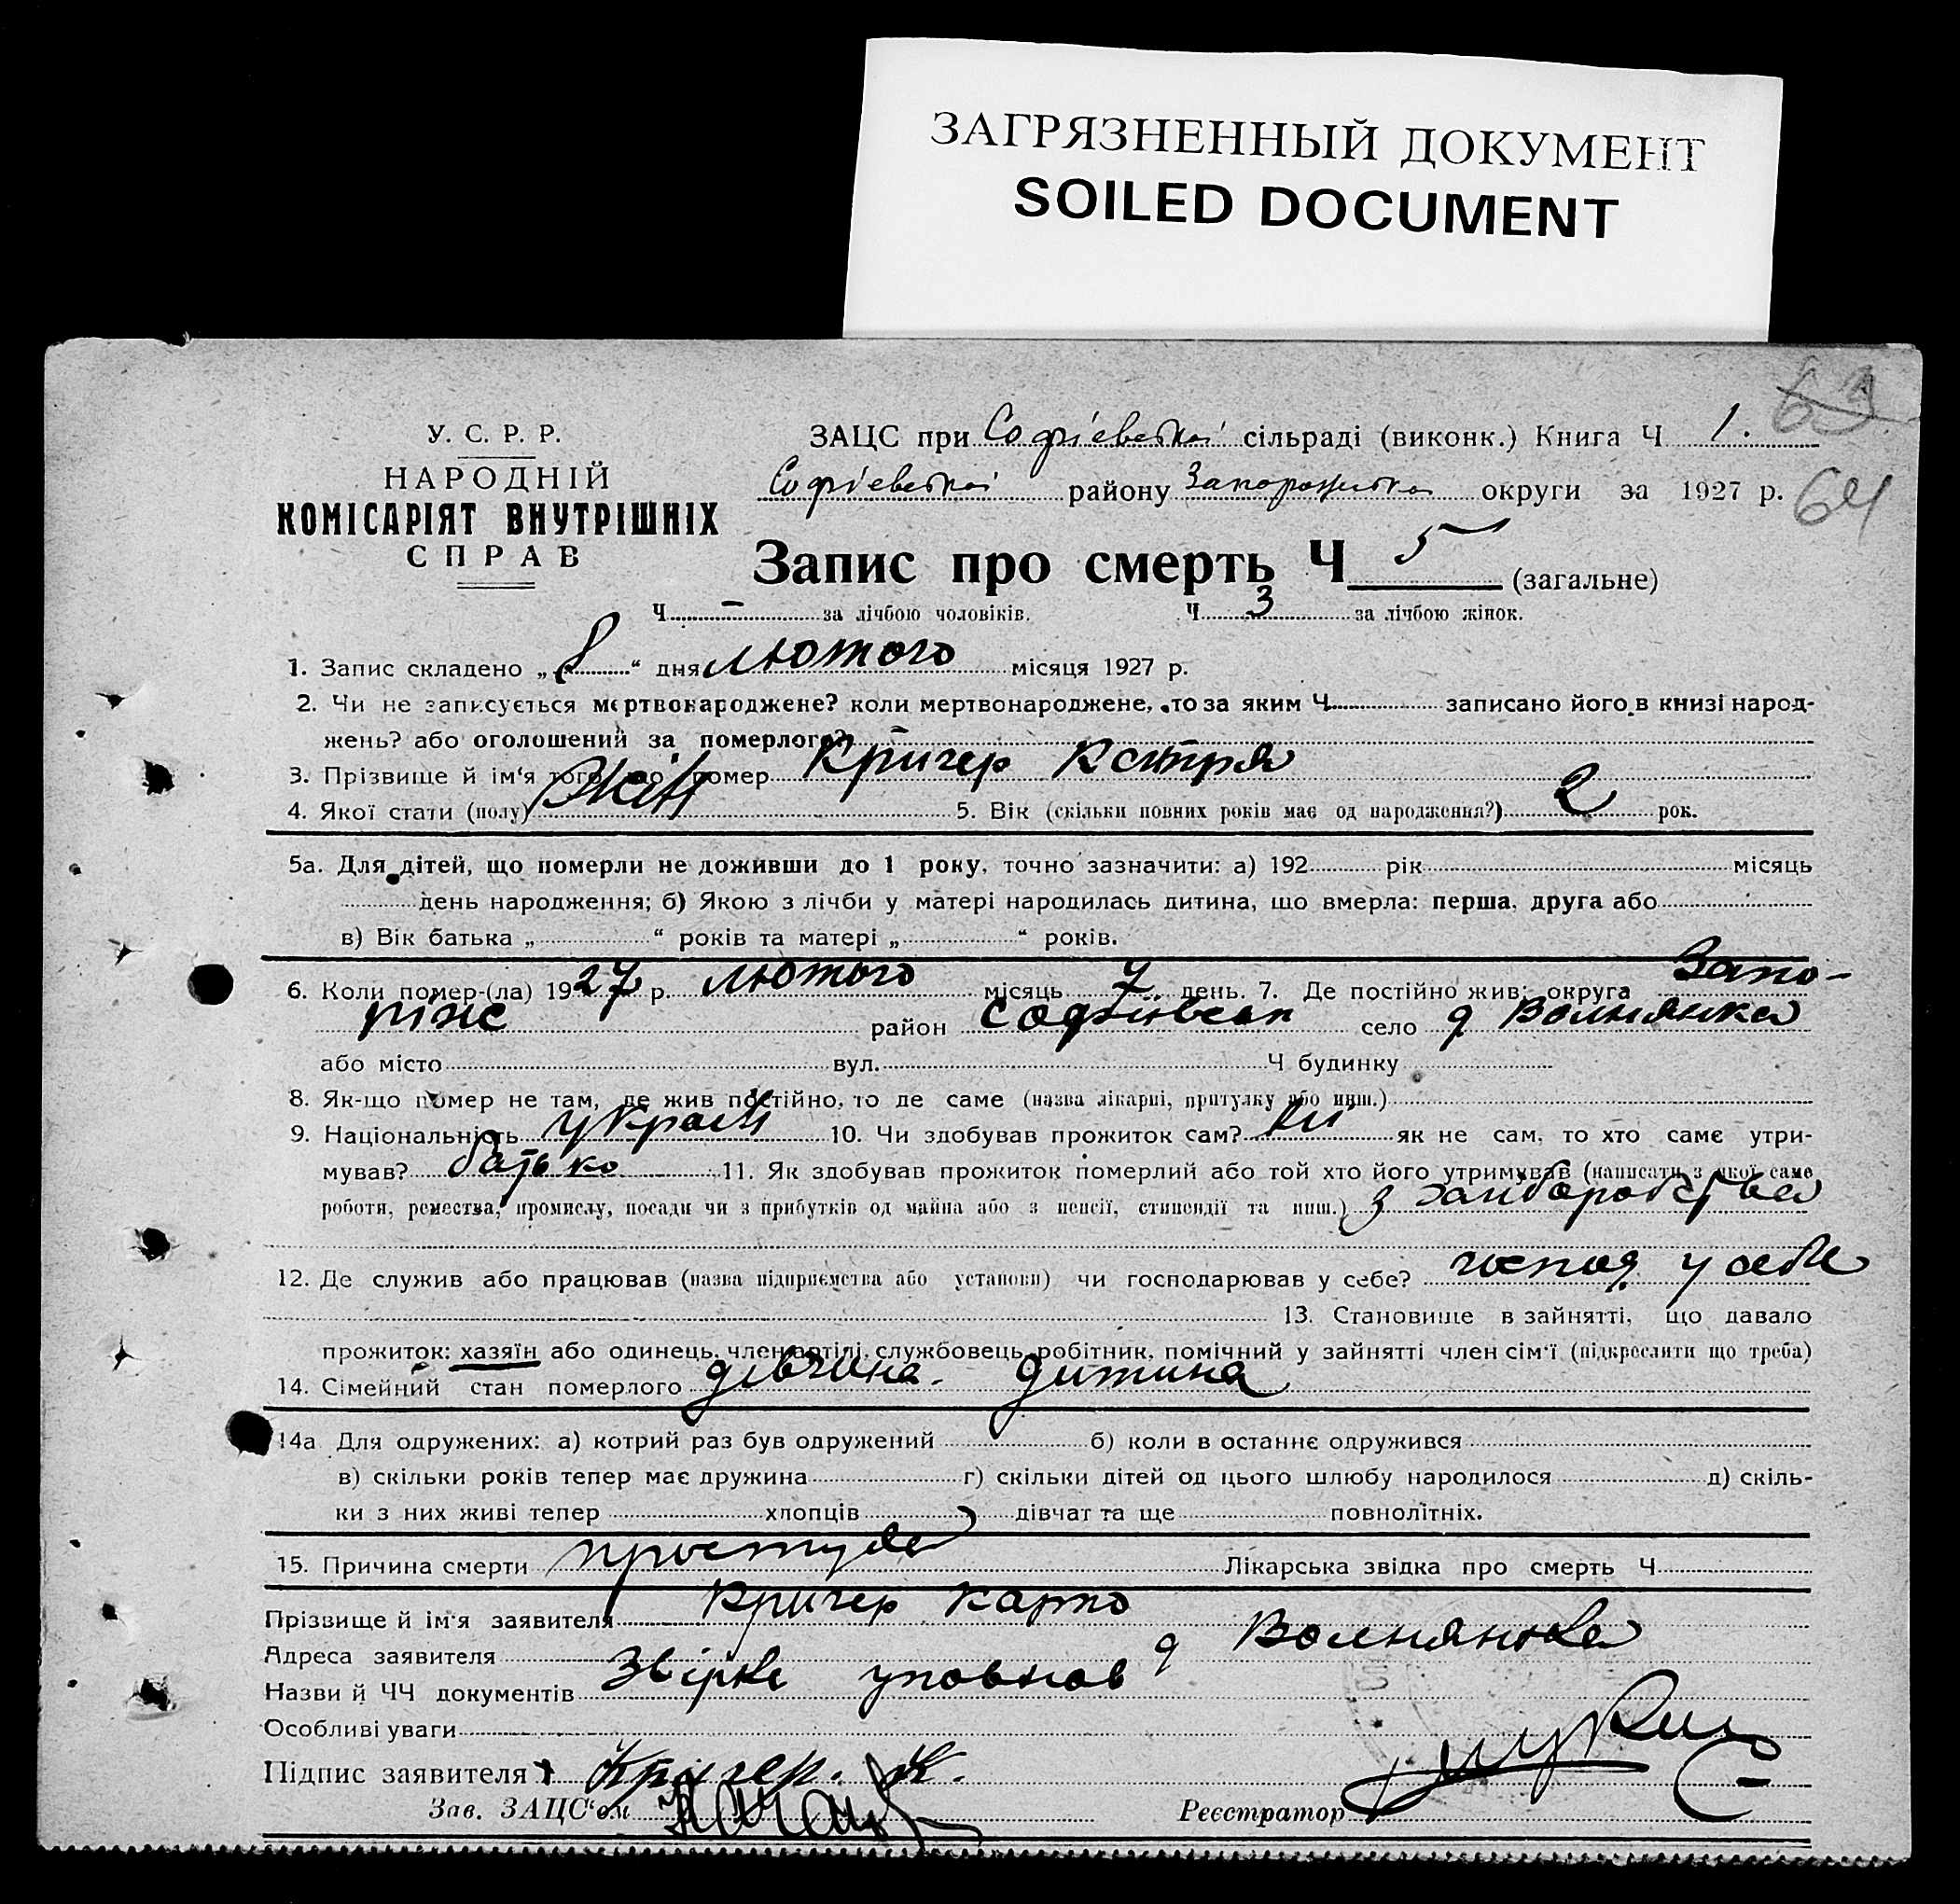 ЗАГРЯЗНЕННЫЙ ДОКУМЕНТ
SOILED DOCUMENT
63
64
У. С. Р. Р.
НАРОДНІЙ
КОМІСАРІЯТ ВНУТРІШНІХ
СПРАВ
ЗАЦС при Софіевської сільраді (виконк.) Книга Ч 1.
Софієвської району Запорожська округи за 1927 р.
Запис про смерть Ч 5 (загальне)
Ч – за лічбою чоловіків. Ч 3 за лічбою жінок.
1. Запис складено „8“ дня лютого місяця 1927 р.
2. Чи не записується мертвонароджене? коли мертвонароджене, то за яким Ч записано його в книзі народ-
жень? або оголошений за померлого? –
3. Прізвище й ім'я того, що помер Кричер Кстря
4. Якої стати (полу) Жін 5. Вік (скільки повних років має од народження?) 2 рок.
5а. Для дітей, що померли не доживши до 1 року, точно зазначити: а) 192 рік місяць
день народження; б) Якою з лічби у матері народилась дитина, що вмерла: перша, друга або
в) Вік батька „ “ років та матері „ “ років.
6. Коли помер-(ла) 1927 р. лютого місяць 7 день. 7. Де постійно жив: округа Запо-
ріжс район Софіївськ село д Волнянка
або місто вул. Ч будинку
8. Як-що помер не там, де жив постійно, то де саме (назва лікарні, притулку або инш.)
9. Національність україн 10. Чи здобував прожиток сам? ні як не сам, то хто саме утри-
мував? батько 11. Як здобував прожиток померлий або той хто його утримував (написати з якої саме
роботи, ремества, промислу, посади чи з прибутків од майна або з пенсії, стипендії та инш.) з хліборобства
12. Де служив або працював (назва підприємства або установи) чи господарював у себе? господ у себе
13. Становище в зайнятті, що давало
прожиток: хазяїн або одинець, член артілі, службовець, робітник, помічний у зайнятті член сім'ї (підкреслити що треба)
14. Сімейний стан померлого дівчина. дитина
14а Для одружених: а) котрий раз був одружений б) коли в останнє одружився
в) скільки років тепер має дружина г) скільки дітей од цього шлюбу народилося д) скіль-
ки з них живі тепер хлопців дівчат та ще повнолітніх.
15. Причина смерти простуда Лікарська звідка про смерть Ч
Прізвище й ім'я заявителя Кричер Карпо
Адреса заявителя д Волнянка
Назви й ЧЧ документів Звірка уповнов
Особливі уваги
Підпис заявителя Кричер. К.
Зав. ЗАЦС'ом
Реєстратор